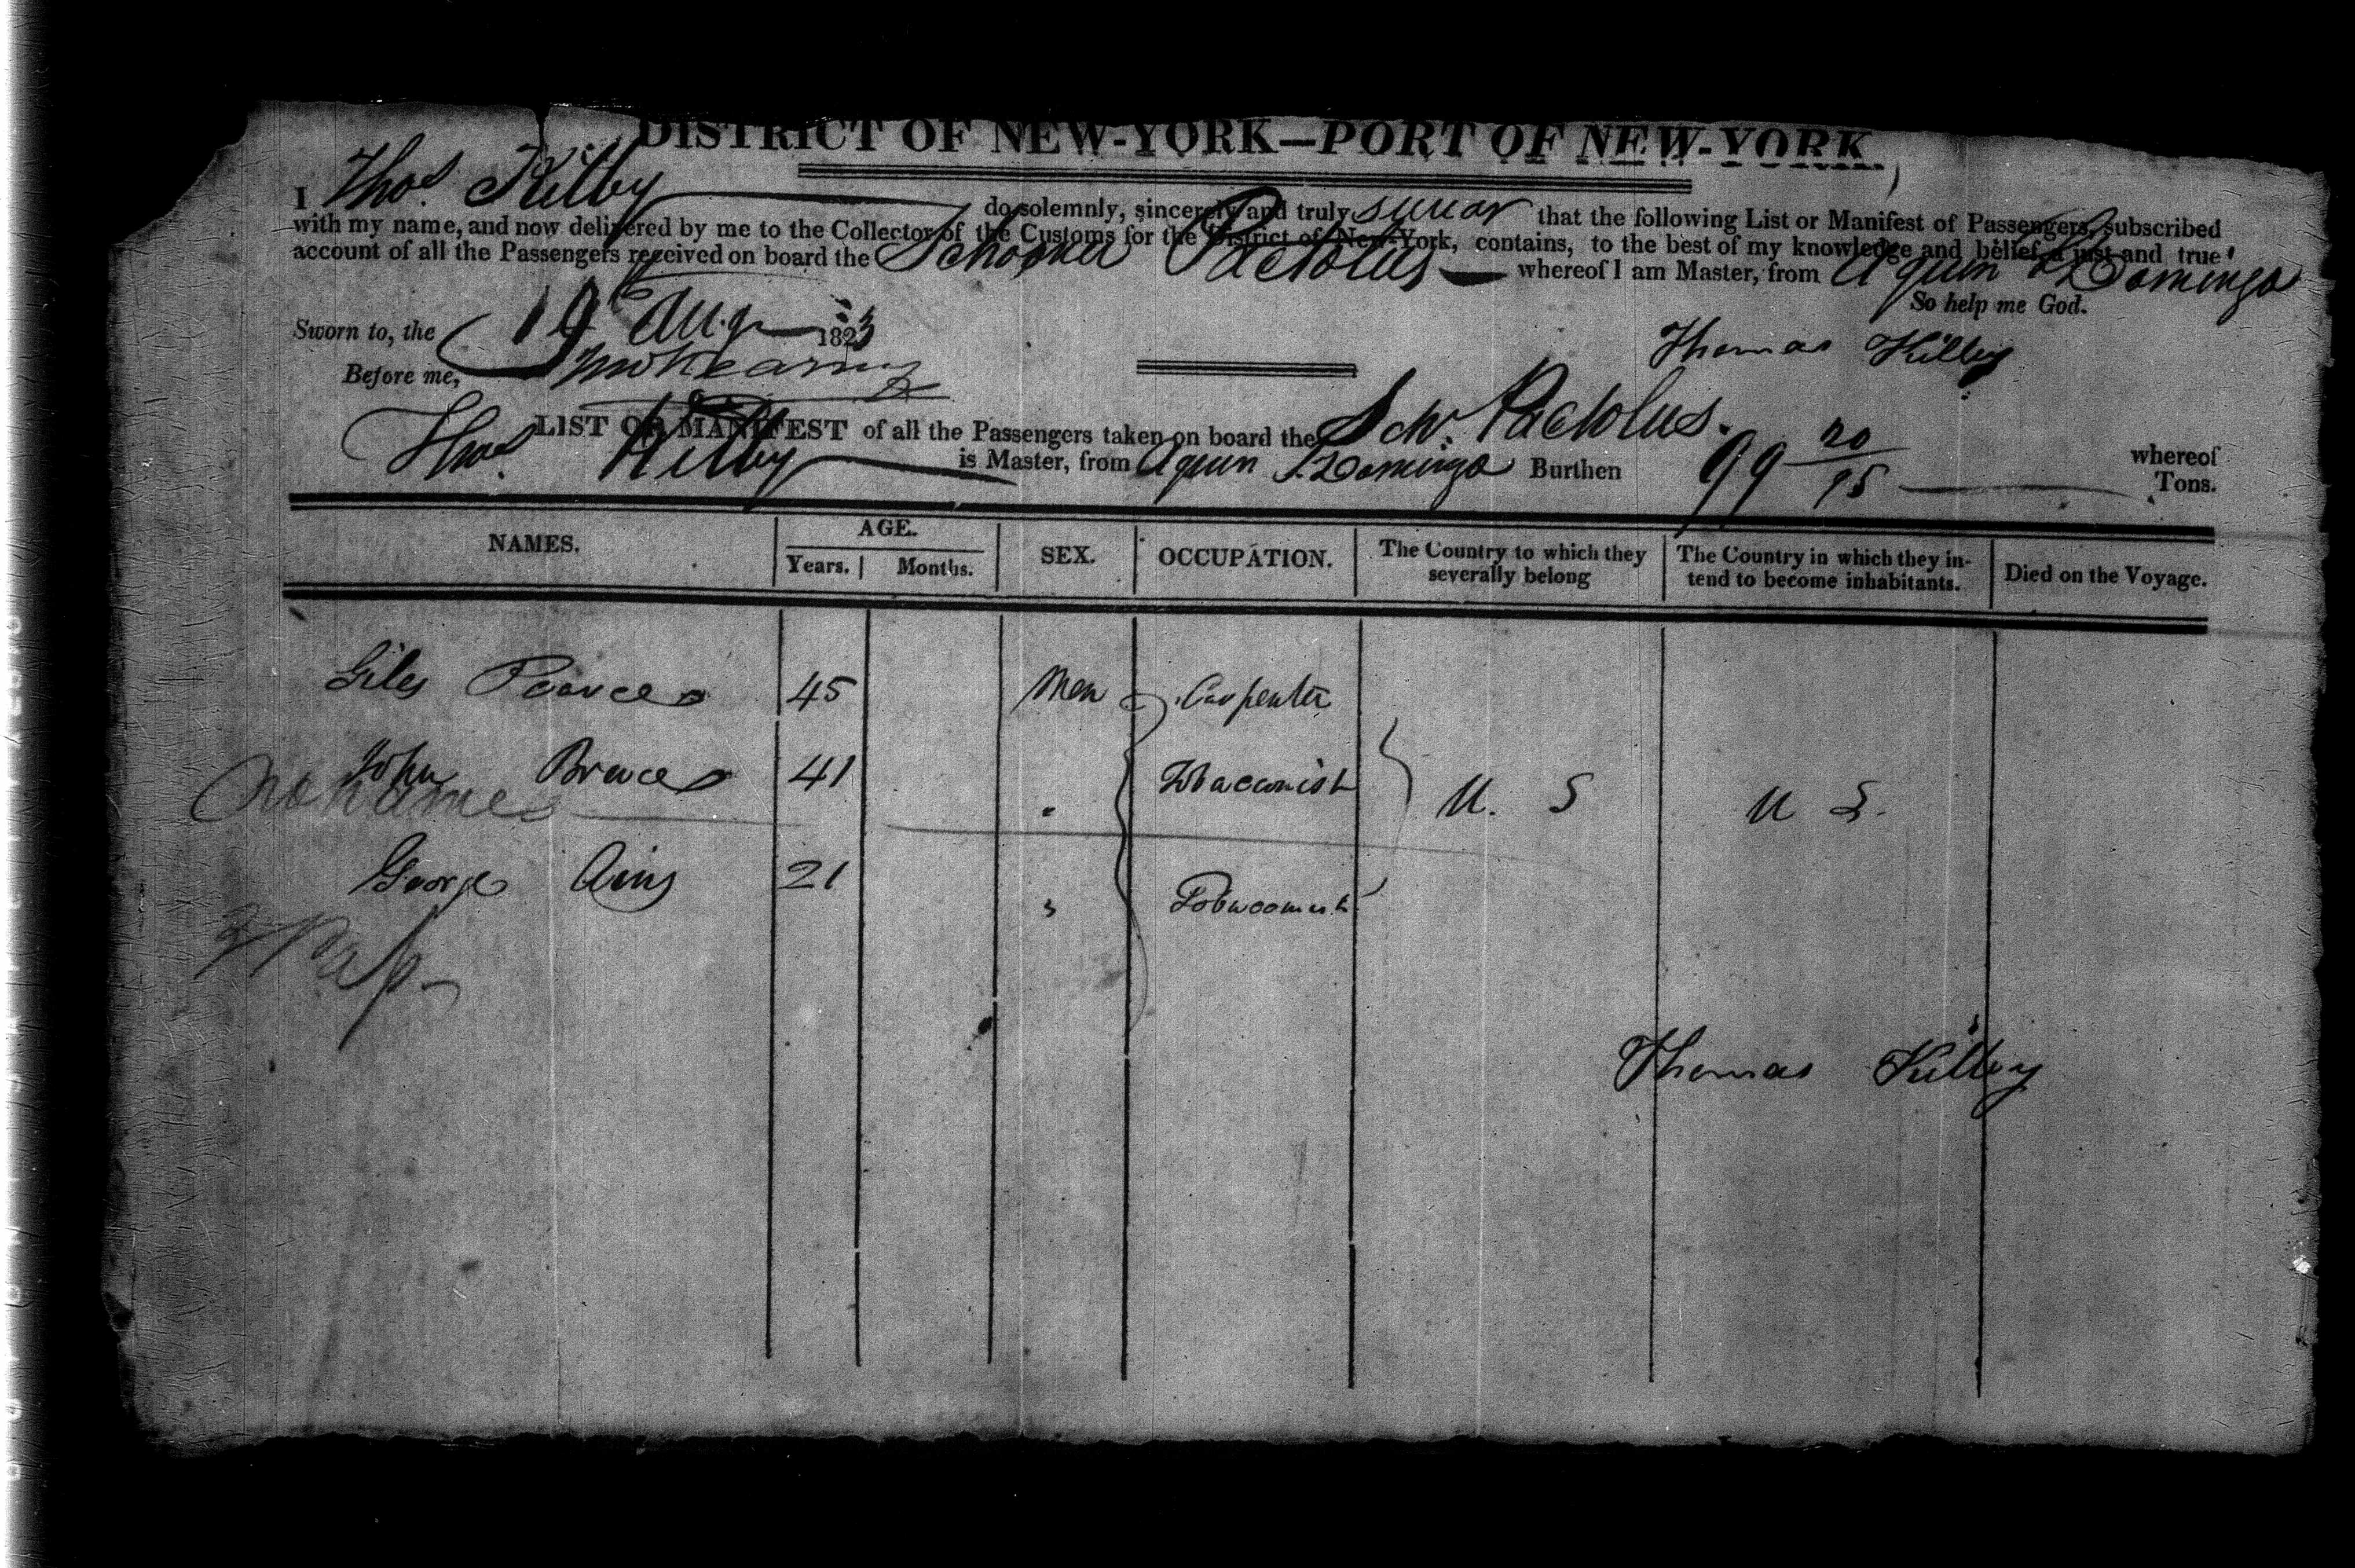 DISTRICT OF NEW-YORK—PORT OF NEW-YORK.
I Thos. Kilby do solemnly, sincerely and truly swear that the following List or Manifest of Passengers, subscribed
with my name, and now delivered by me to the Collector of the Customs for the District of New-York, contains, to the best of my knowledge and belief, a just and true
account of all the Passengers received on board the Schooner Pactolus whereof I am Master, from Aquin St Domingo
So help me God.
Sworn to, the 19 Aug 1823
Thomas Kilby
Before me,
LIST OR MANIFEST of all the Passengers taken on board the Schr. Pactolus. whereof
Thos. Kilby is Master, from Aquin St. Domingo Burthen 99 20/95 Tons.
NAMES. AGE. SEX. OCCUPATION. The Country to which they severally belong The Country in which they intend to become inhabitants. Died on the Voyage.
Years. Months.
Giles Pearce 45 Men Carpenter
John Bruce 41 " Tobacconist U. S U S.
No name
George Ains 21 " Tobacconist
3 Pass
Thomas Kilby